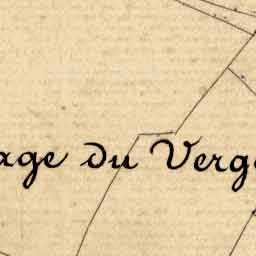 age du Verg